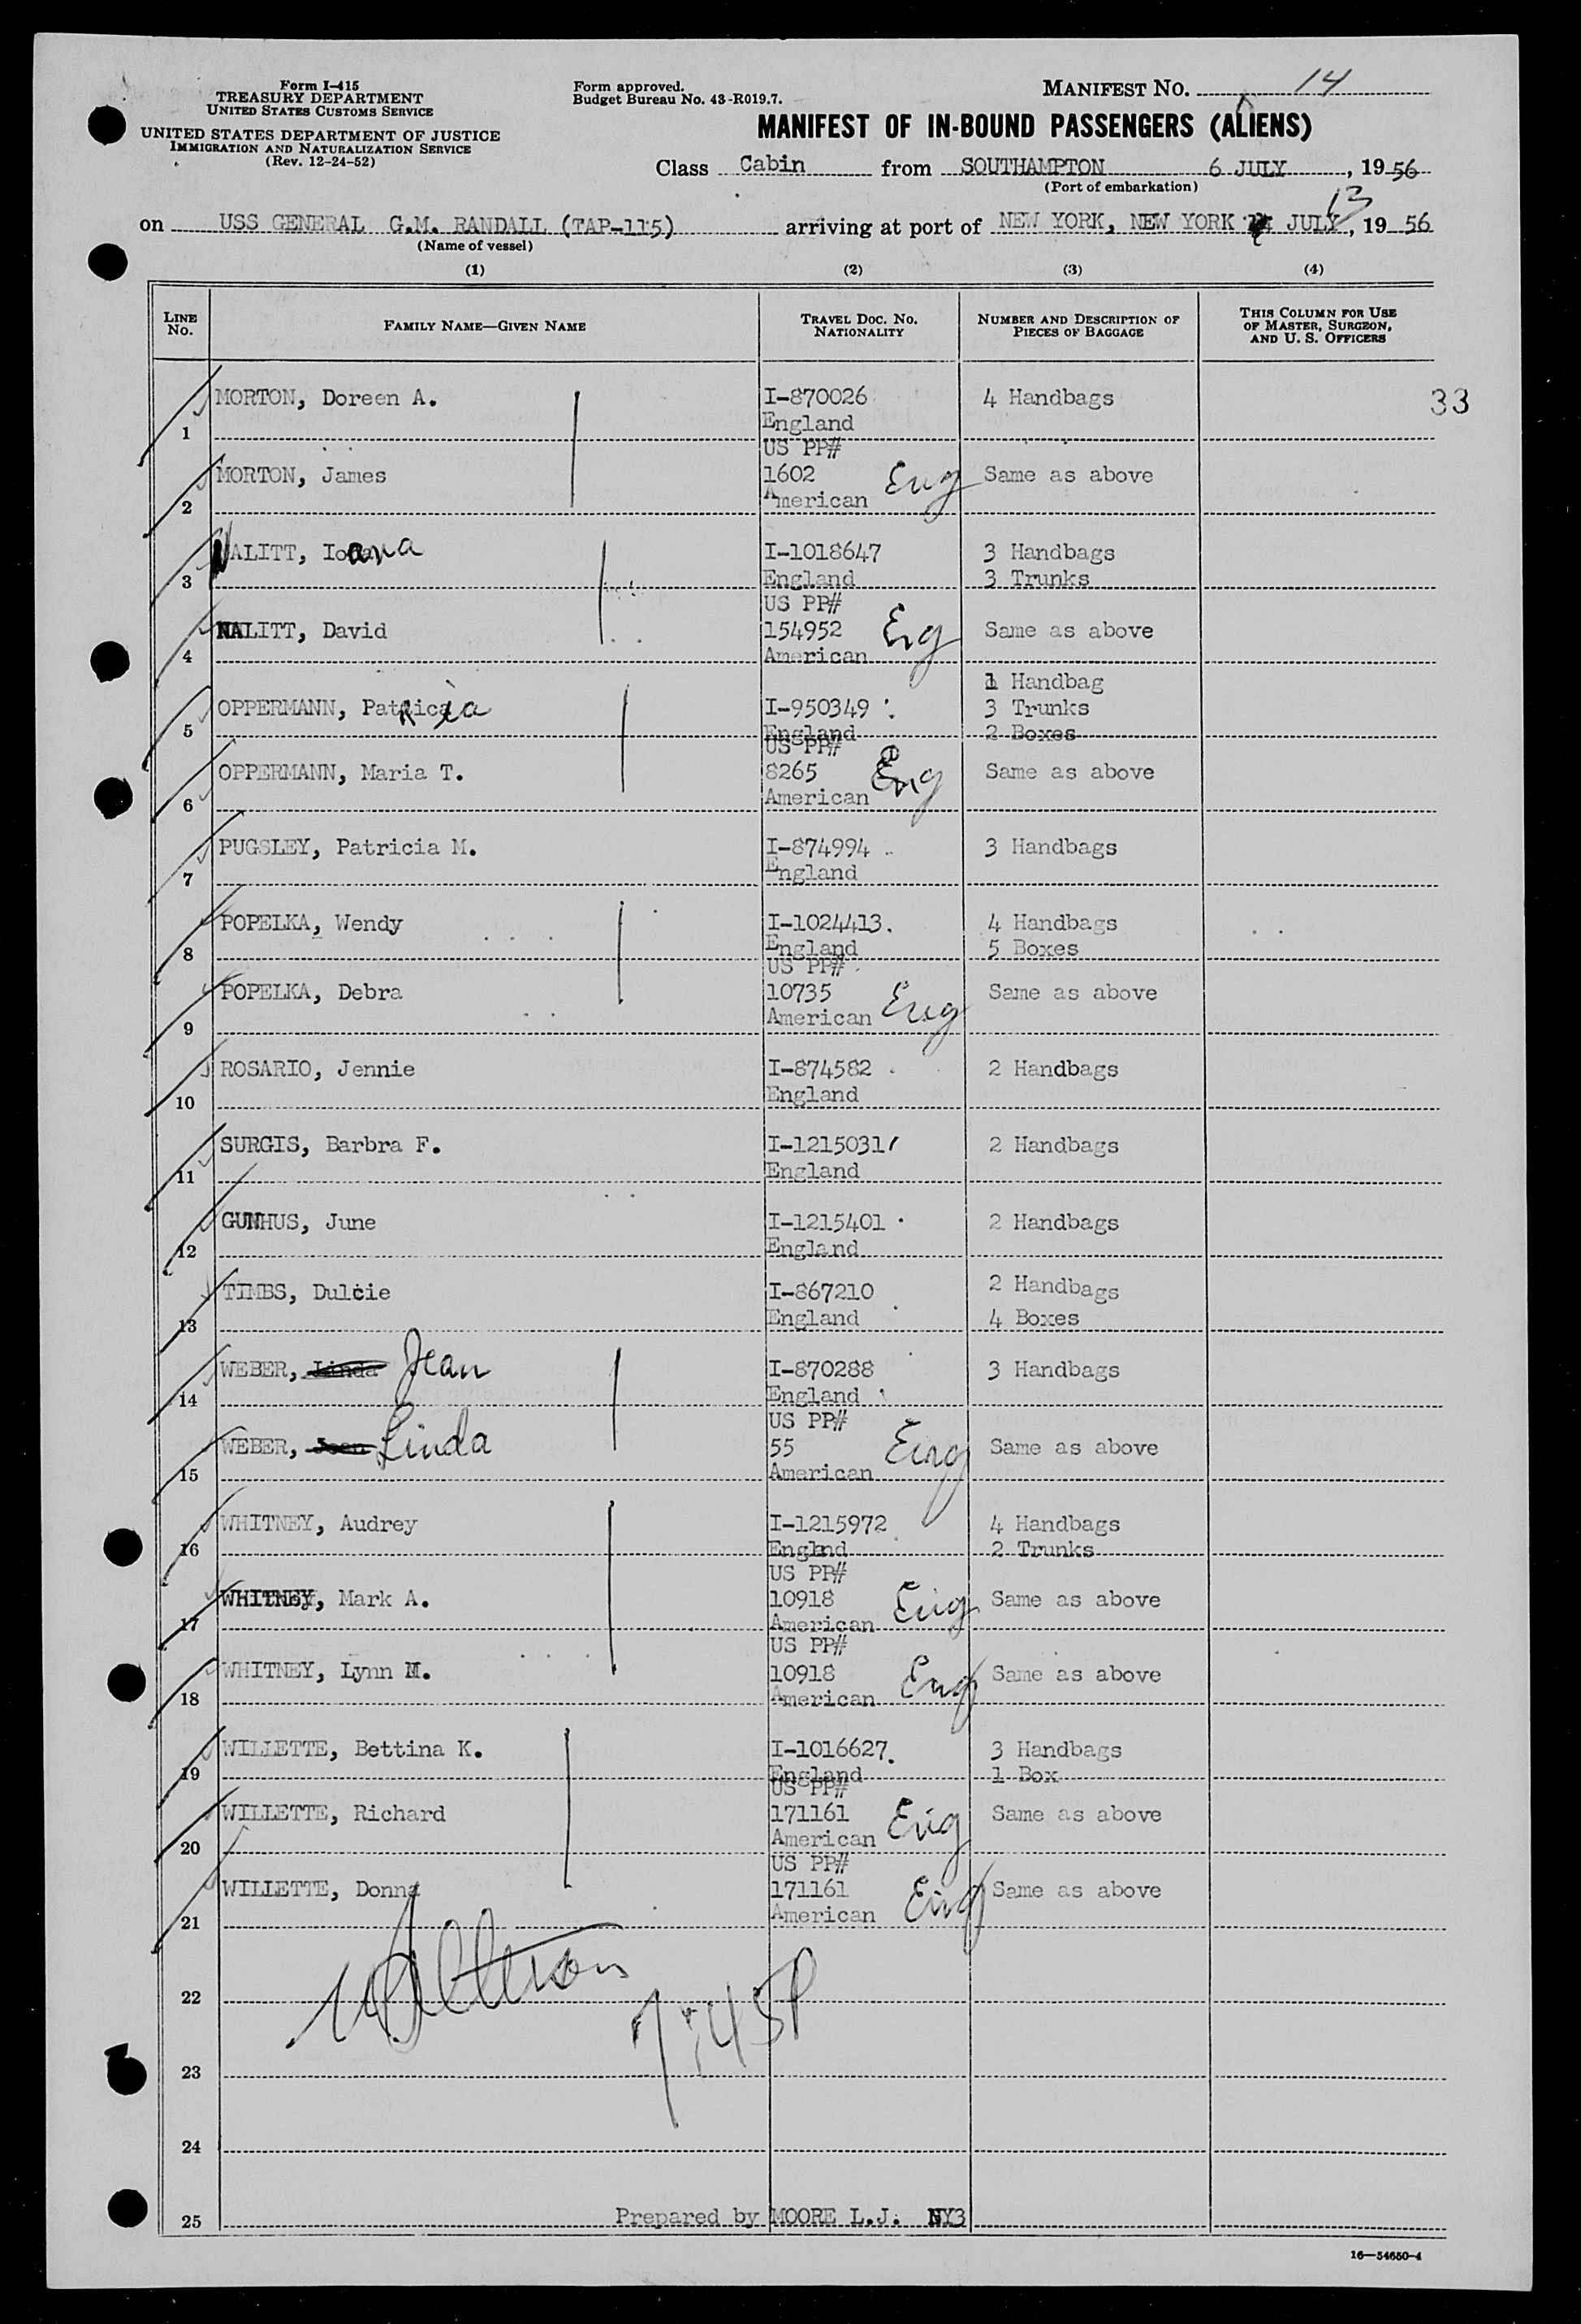 Form I-415
TREASURY DEPARTMENT
UNITED STATES CUSTOMS SERVICE
UNITED STATES DEPARTMENT OF JUSTICE
IMMIGRATION AND NATURALIZATION SERVICE
(Rev. 12-24-52)
Form approved.
Budget Bureau No. 43-R019.7.
MANIFEST NO. 14
MANIFEST OF IN-BOUND PASSENGERS (ALIENS)
Class Cabin from SOUTHAMPTON 6 JULY, 1956
(Port of embarkation)
on USS GENERAL G.M. RANDALL (TAP-115) arriving at port of NEW YORK, NEW YORK 13 JULY, 1956
(Name of vessel)
(1) (2) (3) (4)
LINE NO. FAMILY NAME—GIVEN NAME TRAVEL DOC. NO. NATIONALITY NUMBER AND DESCRIPTION OF PIECES OF BAGGAGE THIS COLUMN FOR USE OF MASTER, SURGEON, AND U. S. OFFICERS
33
1 MORTON, Doreen A. I-870026 4 Handbags
England
US PP#
2 MORTON, James 1602 Eng Same as above
American
3 NALITT, Ioana I-1018647 3 Handbags
England 3 Trunks
US PP#
4 NALITT, David 154952 Eng Same as above
American
1 Handbag
5 OPPERMANN, Patricia I-950349 3 Trunks
England 2 Boxes
US PP#
6 OPPERMANN, Maria T. 8265 Eng Same as above
American
7 PUGSLEY, Patricia M. I-874994 3 Handbags
England
8 POPELKA, Wendy I-1024413. 4 Handbags
England 5 Boxes
US PP#
9 POPELKA, Debra 10735 Eng Same as above
American
10 ROSARIO, Jennie I-874582 2 Handbags
England
11 SURGIS, Barbra F. I-1215031 2 Handbags
England
12 GUNHUS, June I-1215401 2 Handbags
England
13 TIMBS, Dulcie I-867210 2 Handbags
England 4 Boxes
14 WEBER, Linda Jean I-870288 3 Handbags
England
US PP#
15 WEBER, Jean Linda 55 Eng Same as above
American
16 WHITNEY, Audrey I-1215972 4 Handbags
England 2 Trunks
US PP#
17 WHITNEY, Mark A. 10918 Eng Same as above
American
US PP#
18 WHITNEY, Lynn M. 10918 Eng Same as above
American
19 WILLETTE, Bettina K. I-1016627. 3 Handbags
England 1 Box
US PP#
20 WILLETTE, Richard 171161 Eng Same as above
American
US PP#
21 WILLETTE, Donna 171161 Eng Same as above
American
22
7:45P
23
24
25 Prepared by MOORE L.J. NY3
16—54650-4